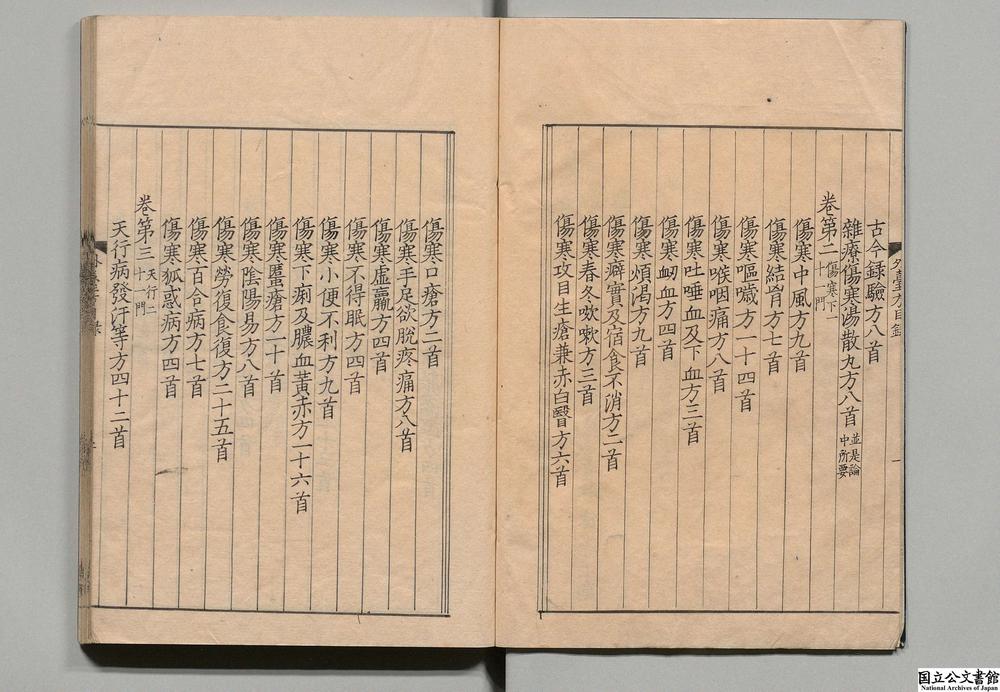 古今録驗方八首
雜療傷寒湯散丸方八首 並是論中所要
卷第二 傷寒下一十一門
傷寒中風方九首
傷寒結胷方七首
傷寒嘔噦方一十四首
傷寒喉咽痛方八首
傷寒吐唾血及下血方三首
傷寒衂血方四首
傷寒煩渴方九首
傷寒癖實及宿食不消方二首
傷寒春冬欬嗽方三首
傷寒攻目生瘡兼赤白瞖方六首
外臺方目錄
一
傷寒口瘡方二首
傷寒手足欲脫疼痛方八首
傷寒虛羸方四首
傷寒不得眠方四首
傷寒小便不利方九首
傷寒下痢及膿血黃赤方一十六首
傷寒䘌瘡方一十首
傷寒陰陽易方八首
傷寒勞復食復方二十五首
傷寒百合病方七首
傷寒狐惑病方四首
卷第三 天行二十一門
天行病發汗等方四十二首
国立公文書館
National Archives of Japan